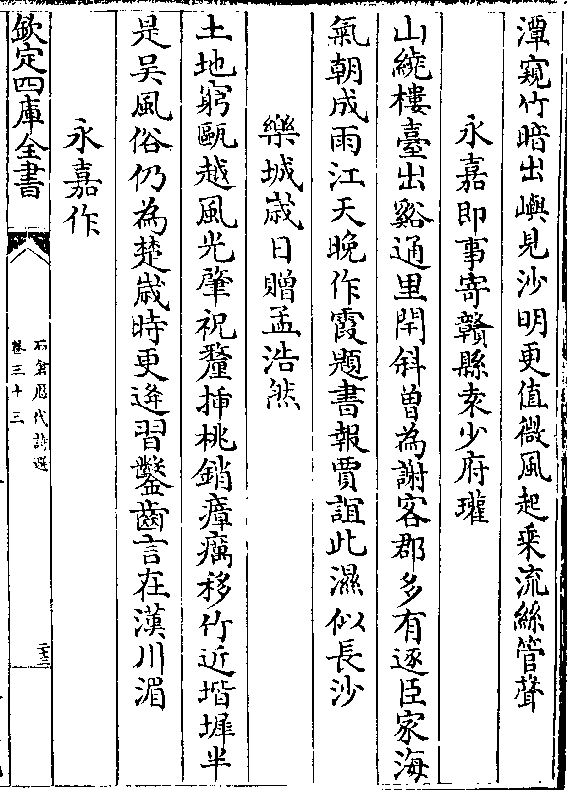 潭窺竹暗出嶼見沙明更值微風起乗流絲管聲
永嘉即事寄贛縣袁少府瓘
山繞樓臺出谿通里閈斜曽為謝客郡多有逐臣家海
氣朝成雨江天晚作霞題書報賈誼此濕似長沙
樂城歳日贈孟浩然
土地窮甌越風光肇祝釐揷桃銷瘴癘移竹近堦墀半
是吴風俗仍為楚歳時更逢習鑿齒言在漢川湄
永嘉作
欽定四庫全書
石倉歴代詩選
卷三十三
二十三